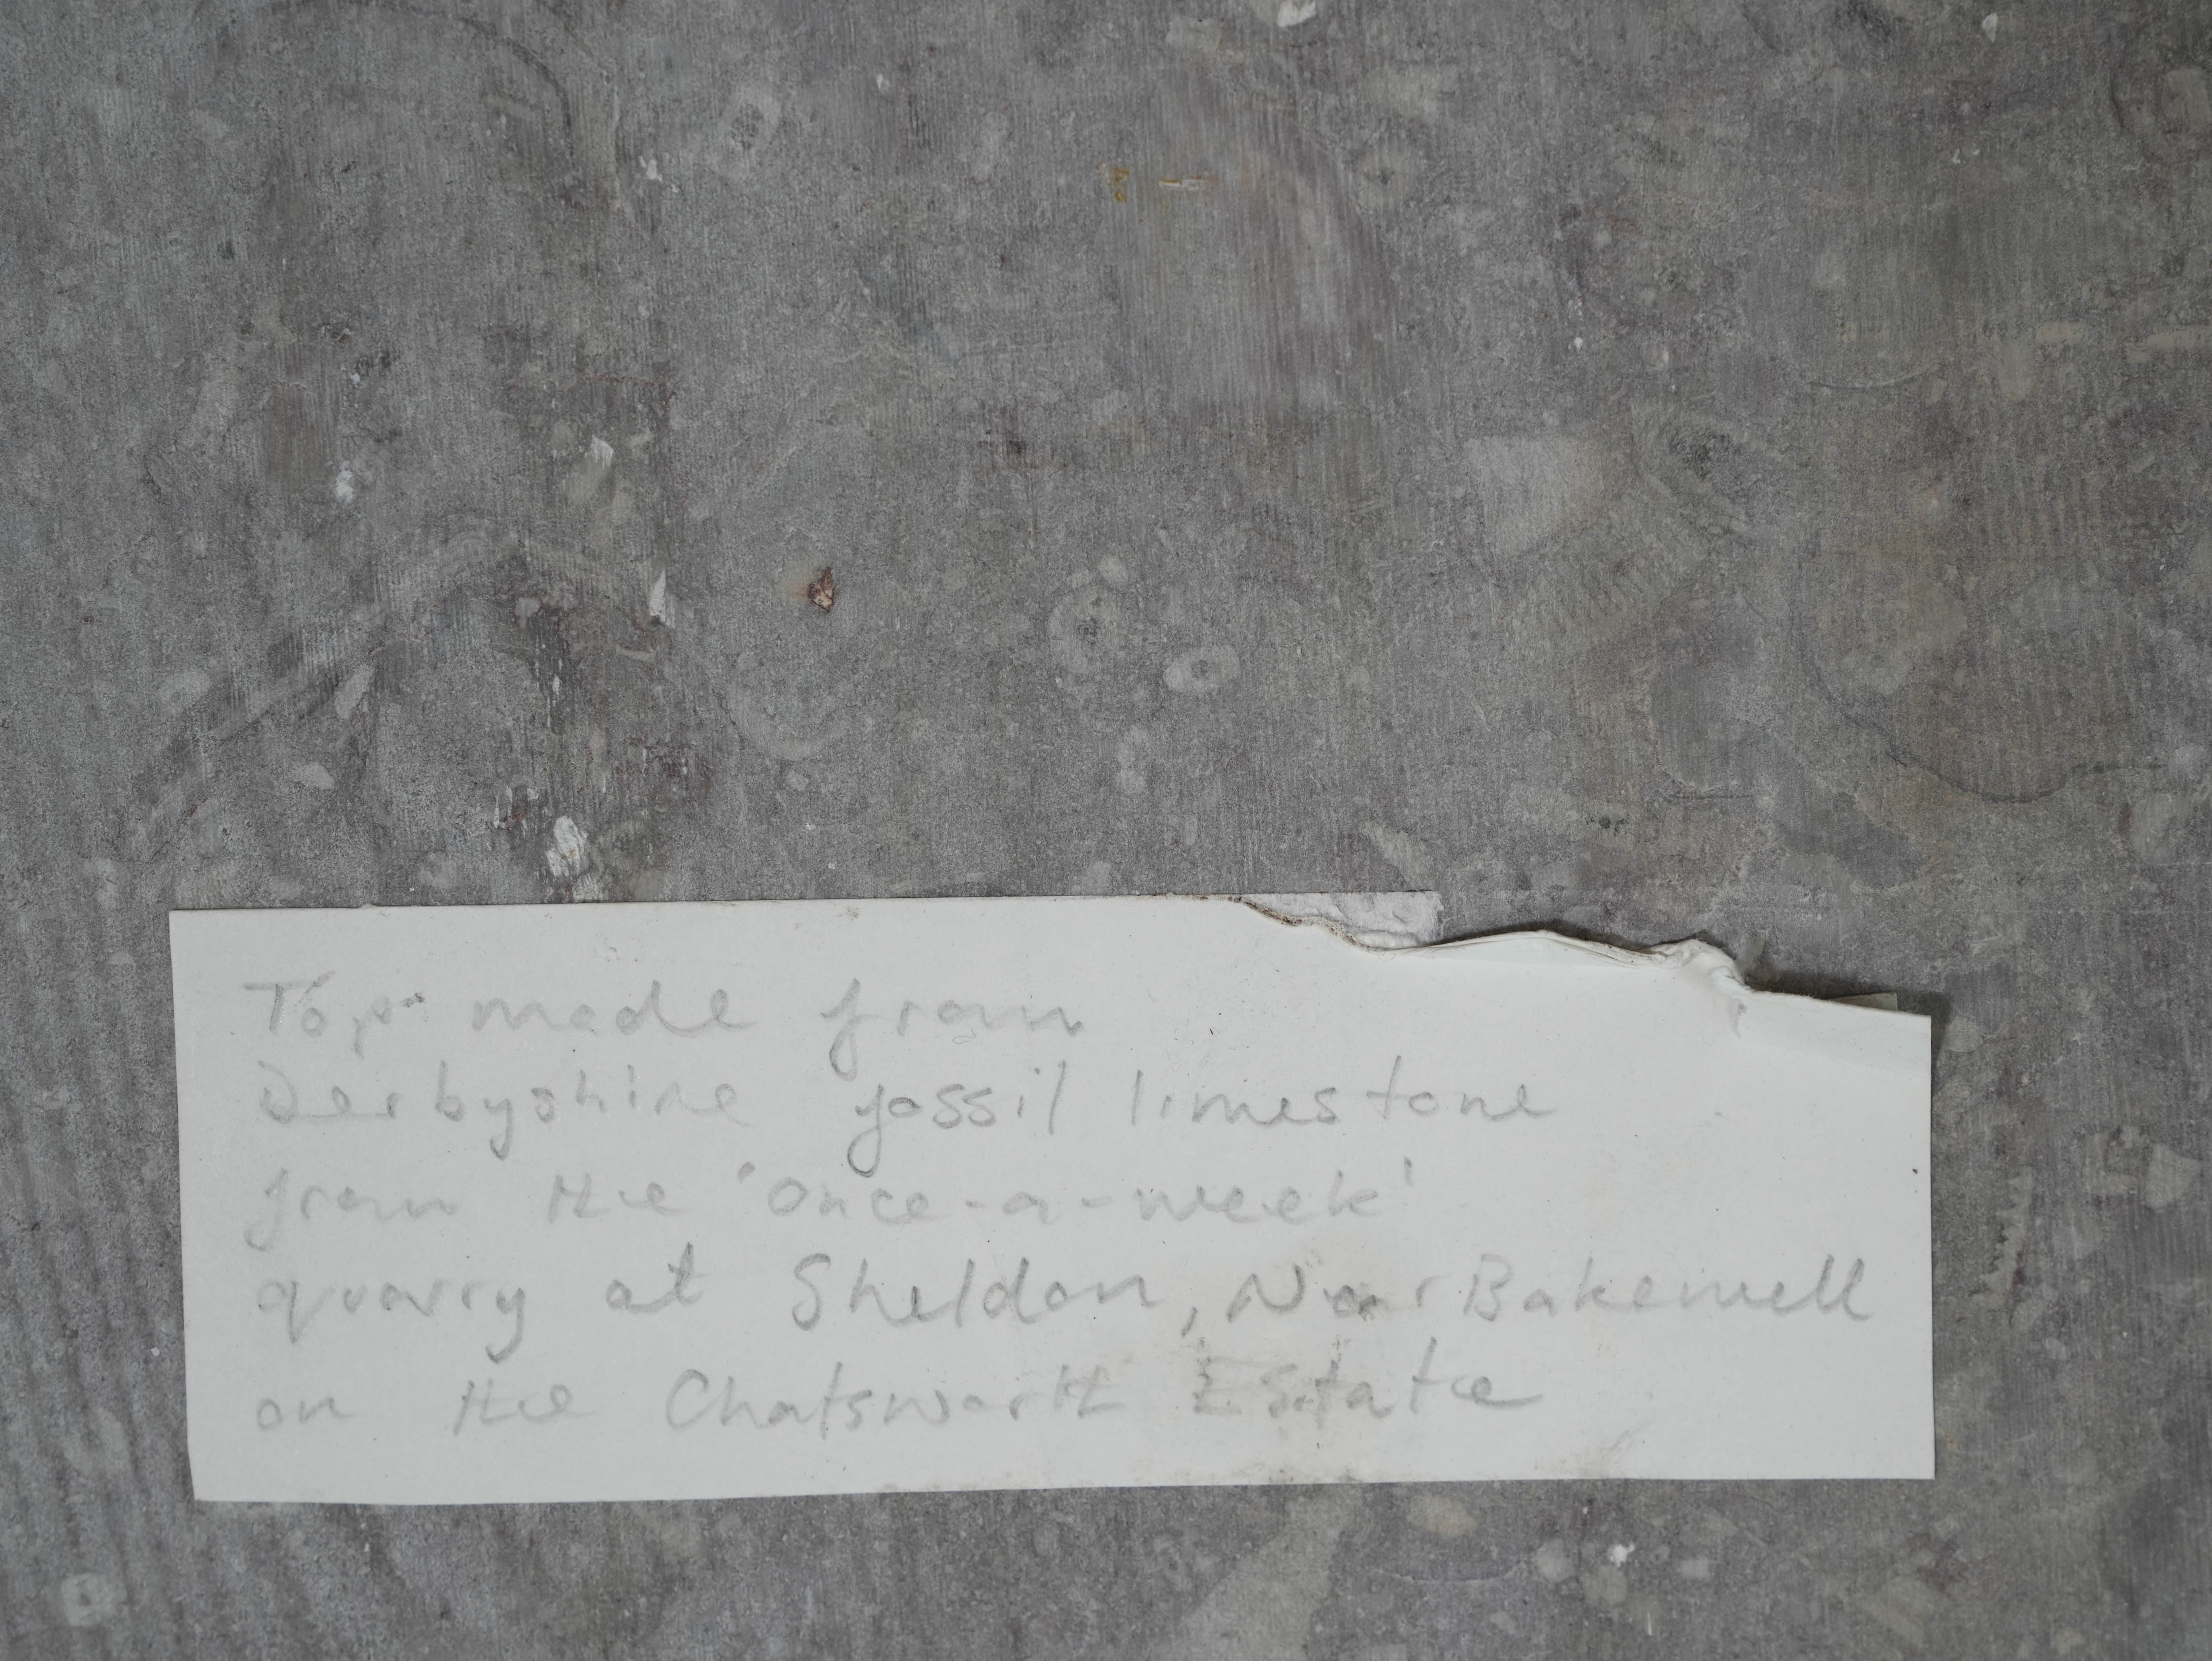 Top made from
Derbyshire fossil limestone
from the 'once-a-week'
quarry at Sheldon, Near Bakewell
on the Chatsworth Estate